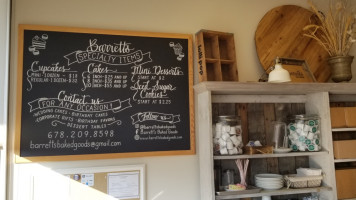 Barretts
SPECIALTY ITEMS
Cupcakes
Cakes
Mini Desserts
START AT $2
Iced Sugar
Cookies
START AT $2.25
Contact us
FOR ANY OCCASION!
WEDDING CAKES • BIRTHDAY CAKES
CORPORATE GIFTS • BIRTHDAY FAVORS
DESSERT TABLES
678.209.8598
barrettsbakedgoods@gmail.com
Follow us
@barrettsbakedgoods
Barretts Baked Goods